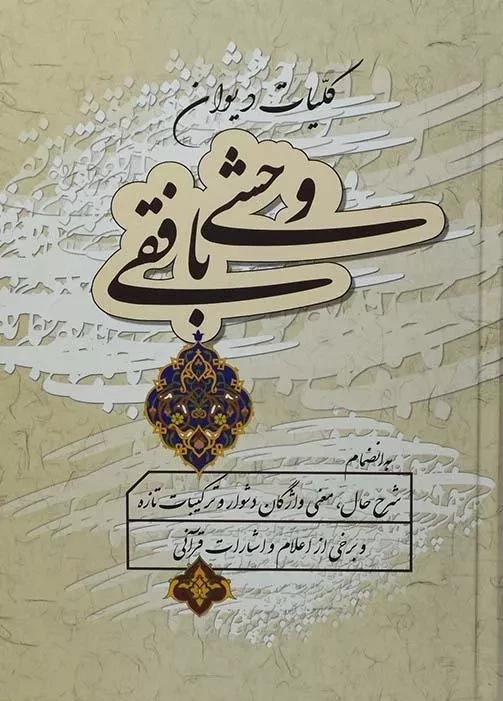 کلّیات دیوان
وحشی
بافقی
به انضمام
شرح حال، معنی واژگان دشوار و ترکیبات تازه
و برخی از اعلام و اشارات قرآنی